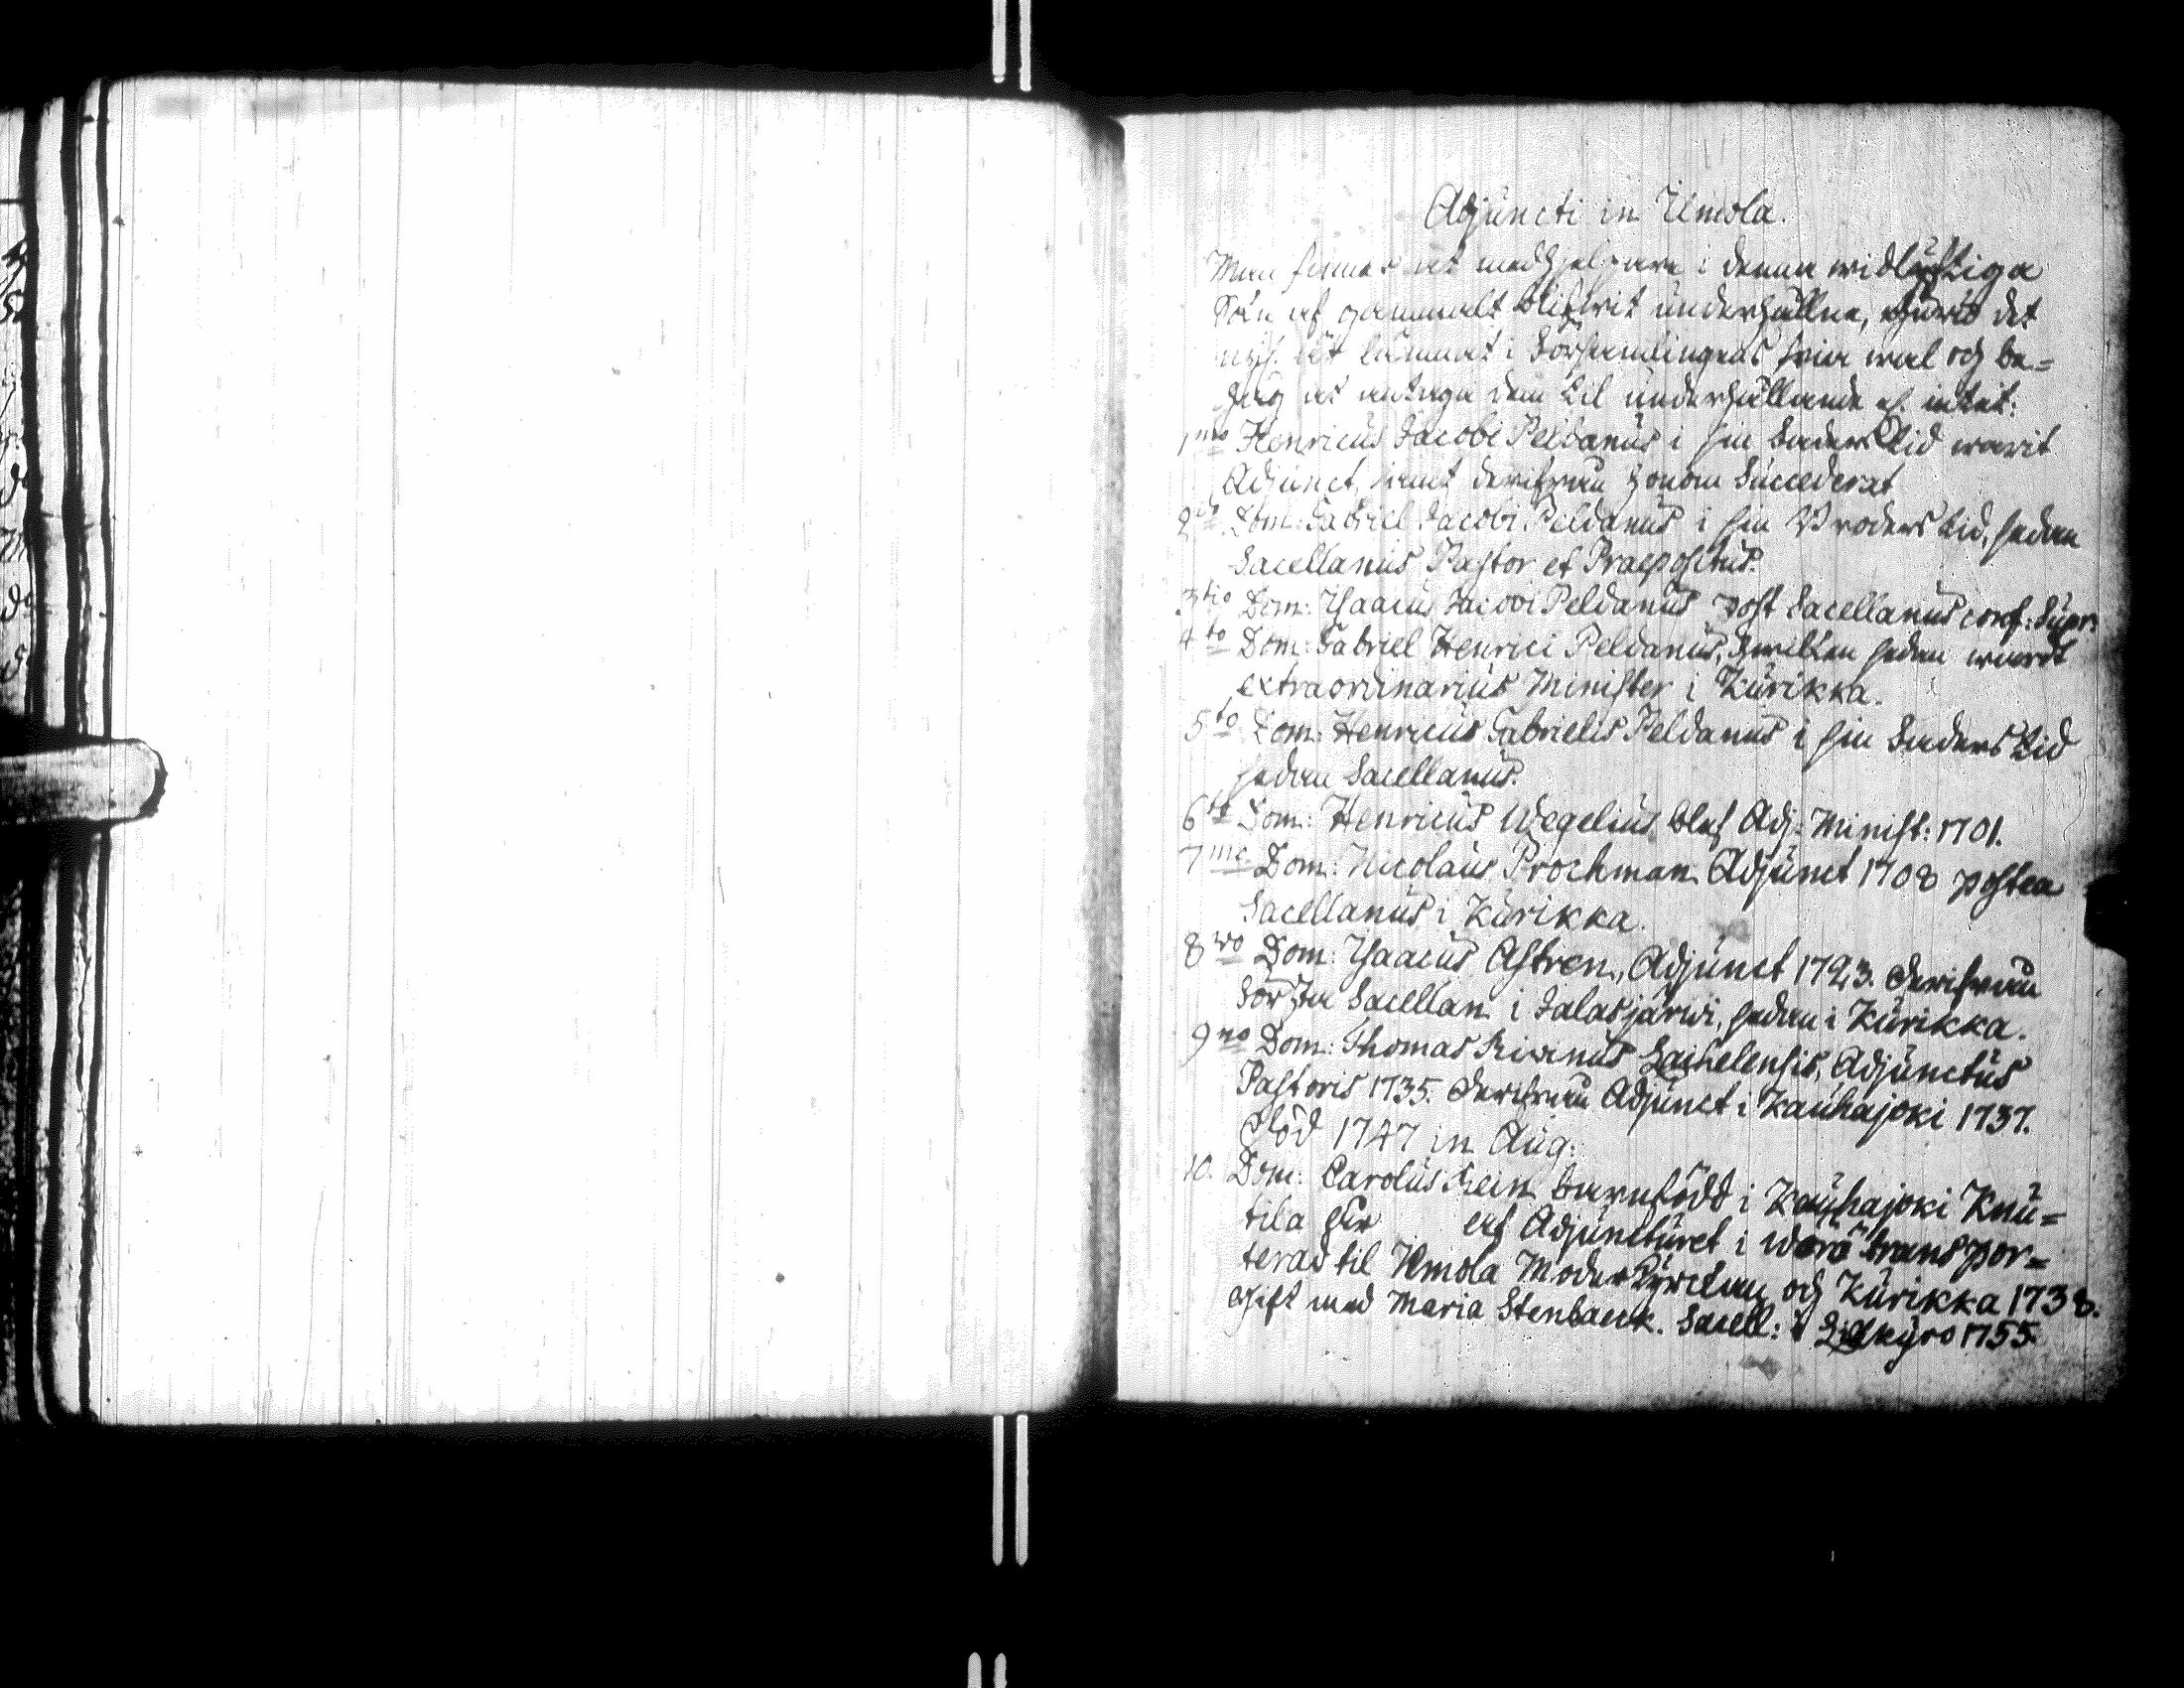 Adjuncti in Ilmola.
Man finner at medhjelpare i denna widlyftiga
Sokn af gammalt blifwit underhållne, ehuru det
och ut lämnat i Församlingens fria wal och be-
hag at antaga dem til underhållande el. intet:
1mo Henricus Jacobi Peldanus i sin Faders tid warit
Adjunct, samt derifrån honom succederat
2do Dom: Gabriel Jacobi Peldanus i sin Broders tid, sedan
Sacellanus Pastor et Praepositus.
3tio Dom: Isaacus Jacobi Peldanus post Sacellanus conf: supr:
4to Dom: Gabriel Henrici Peldanus, hwilken sedan wardt
extraordinarius Minister i Kurikka.
5to Dom: Henricus Gabrielis Peldanus i sin Faders tid
sedan Sacellanus.
6to Dom: Henricus Wegelius blef Adj: Minist: 1701.
7mo Dom: Nicolaus Prochman Adjunct 1708 postea
Sacellanus i Kurikka.
8vo Dom: Isaacus Astren, Adjunct 1723. derifrån
Sacellan i Jalasjärwi, sedan i Kurikka.
9no Dom: Thomas Laihelensis, Adjunctus
Pastoris 1735. derifrån Adjunct i Kauhajoki 1737.
död 1747 in Aug:
10. Dom: Carolus Rein barnfödd i Kauhajoki Knu-
tila Adjuncturet i Wörå transpor-
terad til Ilmola Moderkyrckan och Kurikka 1738.
gift med Maria Stenbaeck. Sacell: i Lillkyro 1755.